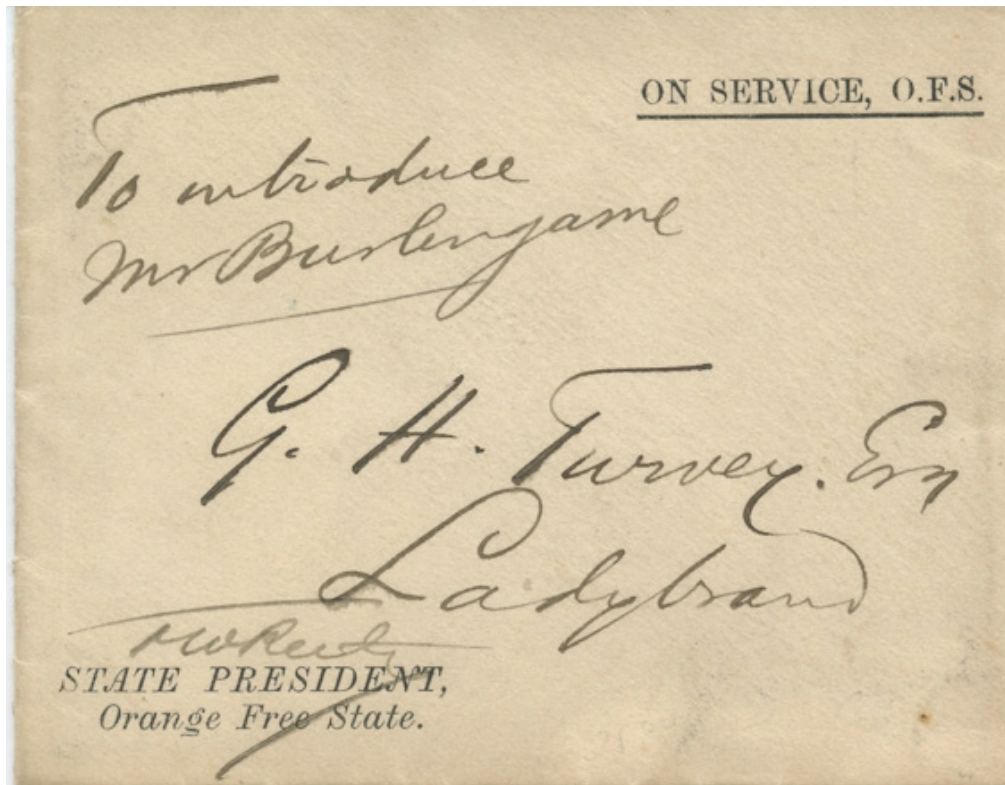 ON SERVICE, O.F.S.
To introduce
Mr Burlingame
G. H. Turvey. Esq
Ladybrand
FWReitz
STATE PRESIDENT,
Orange Free State.